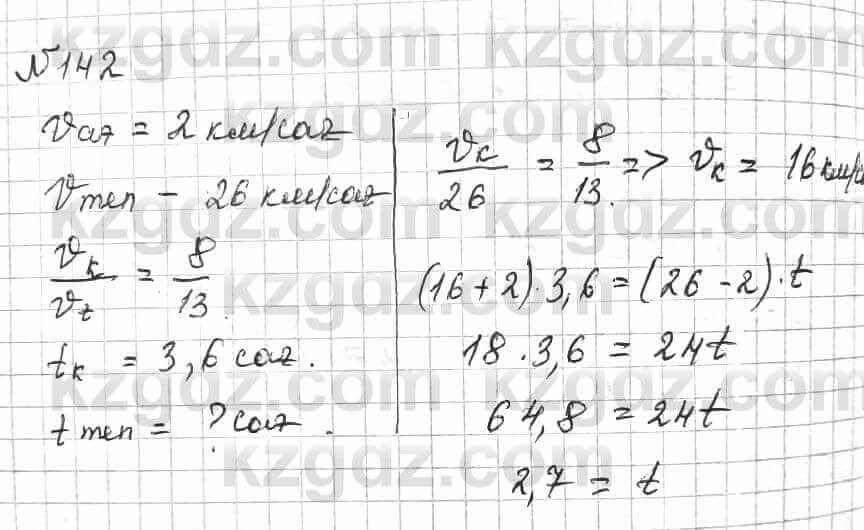 №142
𝑣ағ = 2 км/сағ
𝑣теп – 26 км/сағ
𝑣к/𝑣t = 8/13.
tк = 3,6 сағ.
t теп = ? сағ.
𝑣к/26 = 8/13. => 𝑣к = 16 км/
(16+2)·3,6=(26-2)·t
18·3,6 = 24t
64,8 = 24t
2,7 = t
kzgdz.com